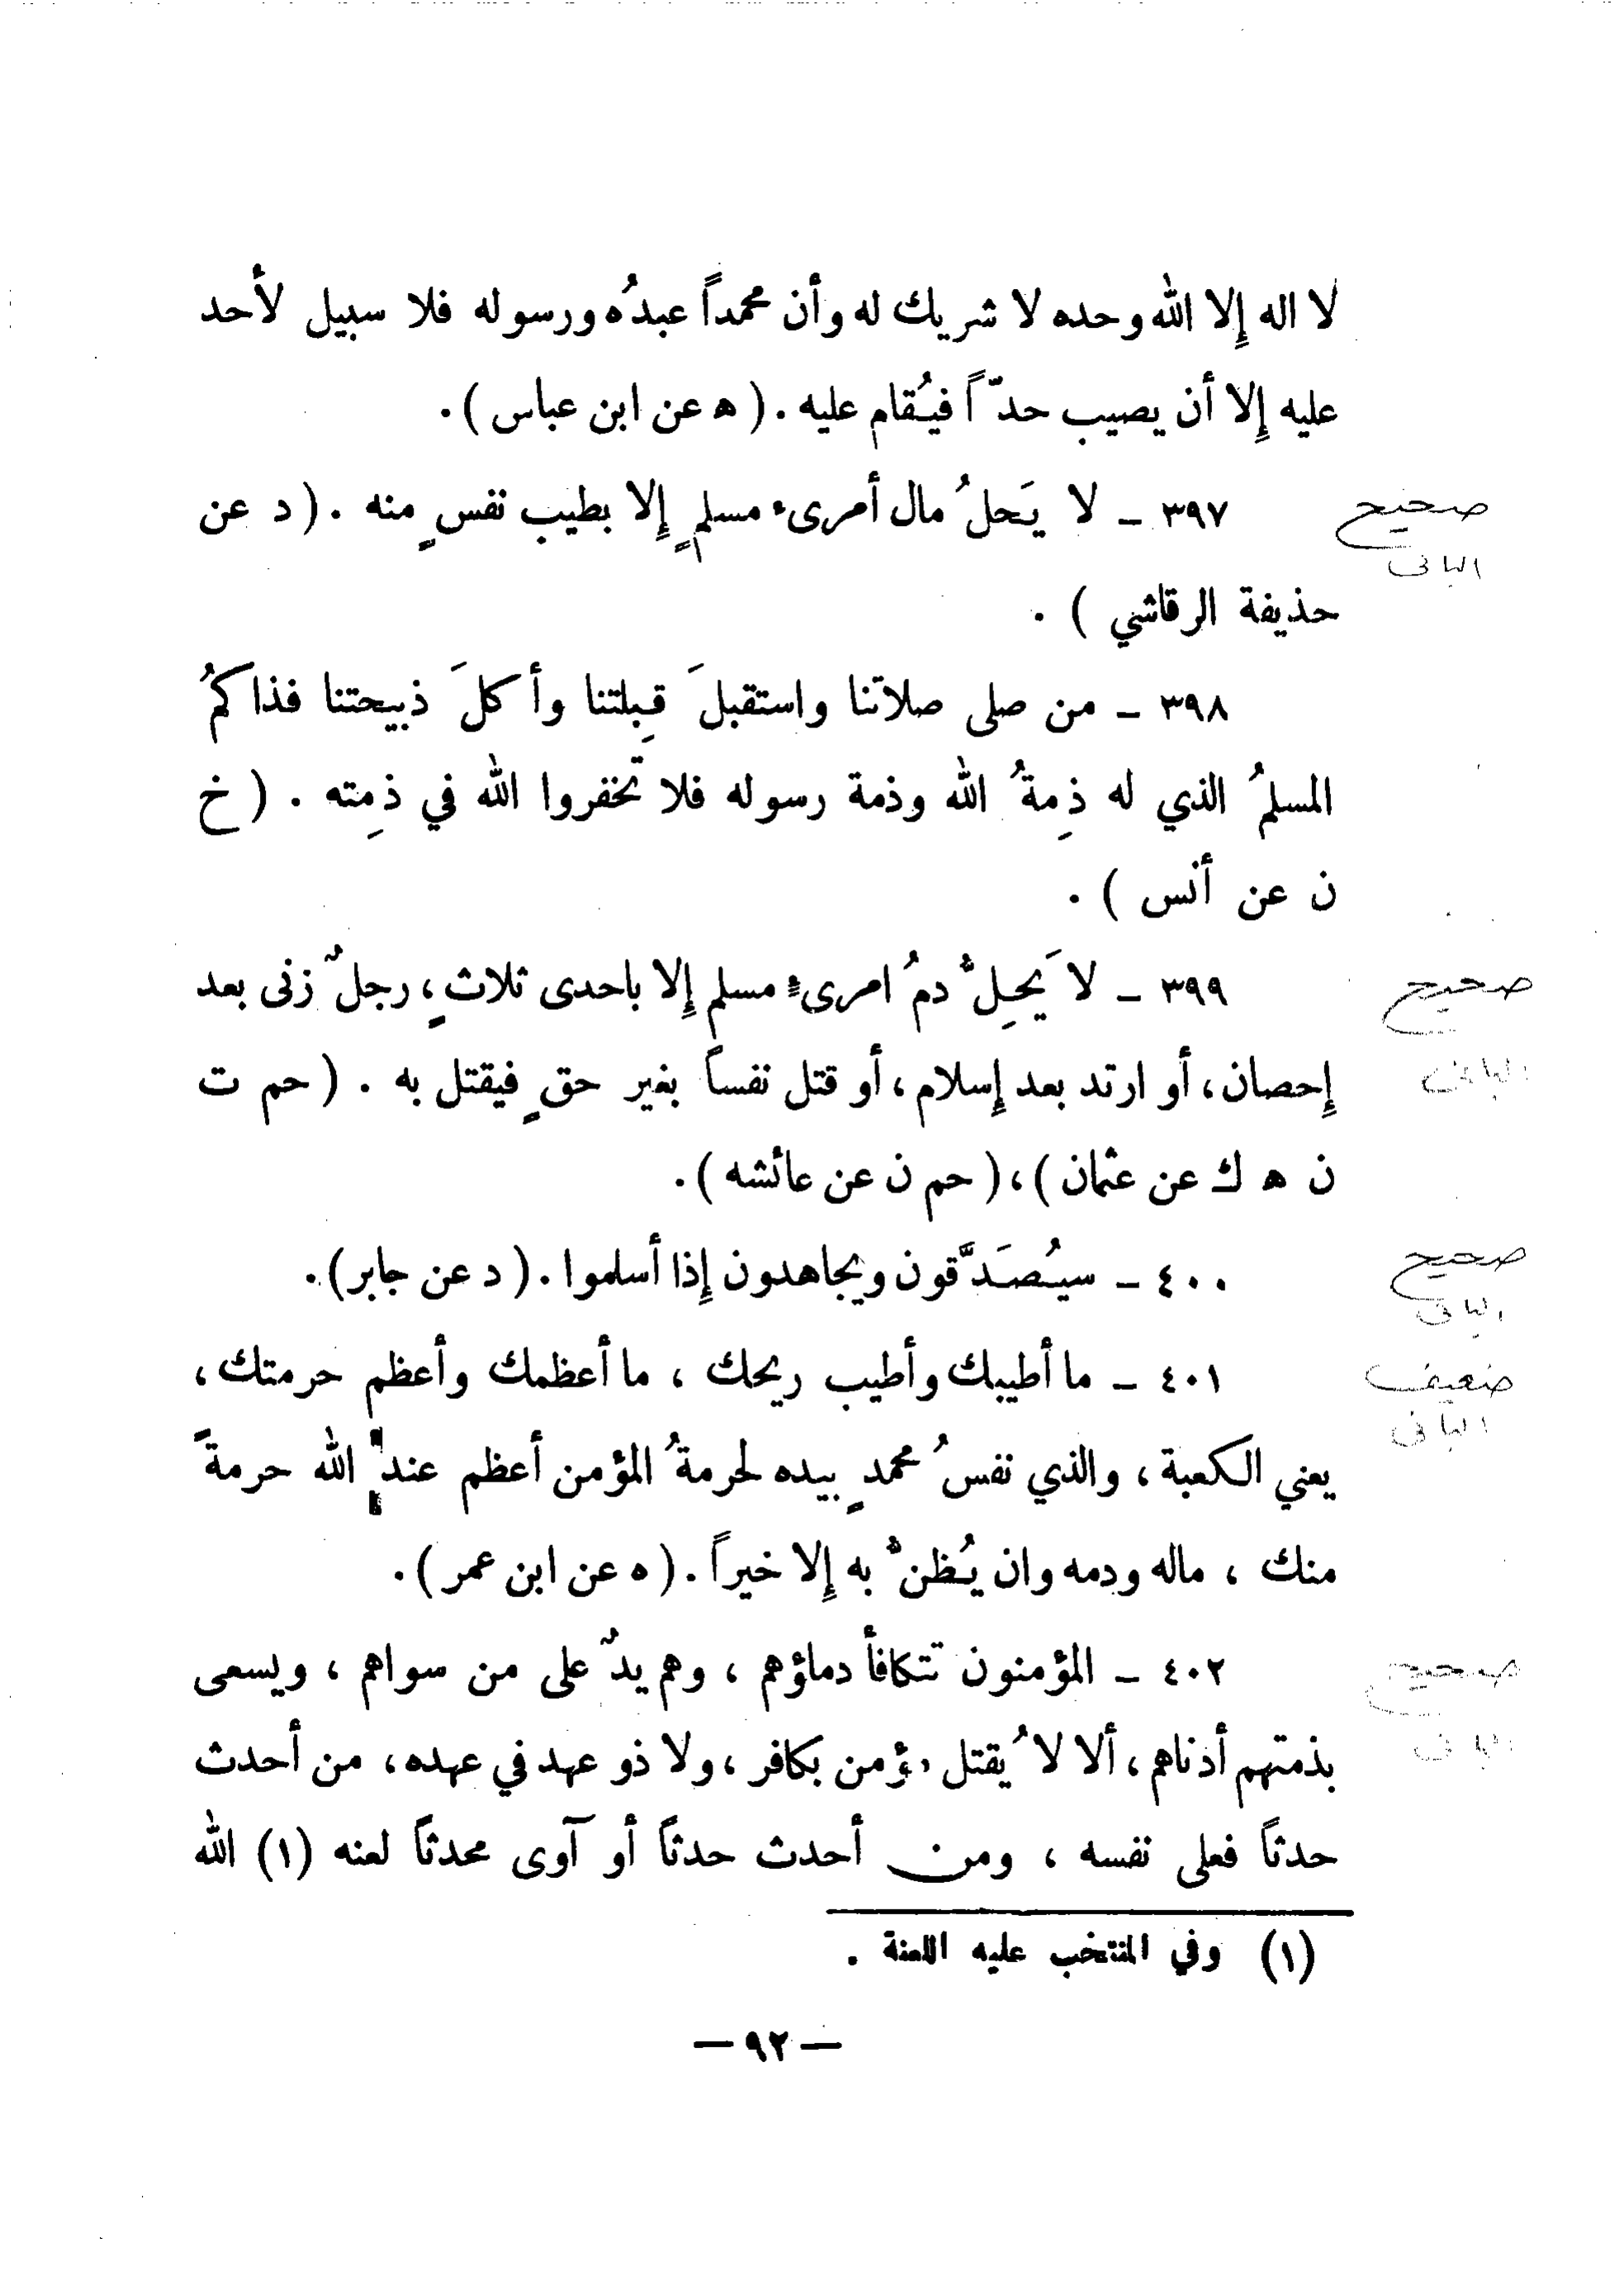 لا اله إِلا الله وحده لا شريك له وأن محمداً عبدُه ورسوله فلا سبيل لأحد
عليه إِلا أن يصيب حدّاً فيُقام عليه . ( ه عن ابن عباس ) .
٣٩٧ - لا يَحلُ مال أمرىء مسلمٍ إِلا بطيب نفسٍ منه . ( د عن
صحيح
البانى
حذيفة الرقاشي ) .
٣٩٨ - من صلى صلاتنا واستقبلَ قِبلتنا وأكلَ ذبيحتنا فذاكمُ
المسلمُ الذي له ذِمةُ الله وذمة رسوله فلا تخفروا الله في ذمِته . ( خ
ن عن أنس ) .
٣٩٩ - لا يَحِلُّ دمُ امرىءٍ مسلم إِلا باحدى ثلاثٍ ، رجلٌ زنى بعد
صحيح
البانى
إِحصان ، أو ارتد بعد إِسلام ، أو قتل نفساً بغير حقٍ فيقتل به . ( حم ت
ن ه ك عن عثمان ) ، ( حم ن عن عائشه ) .
٤٠٠ - سيُصَدَّقون ويجاهدون إِذا أسلموا . ( د عن جابر ) .
صحيح
البانى
٤٠١ - ما أطيبك وأطيب ريحك ، ما أعظمك وأعظم حرمتك ،
ضعيف
البانى
يعني الكعبة ، والذي نفسُ محمدٍ بيده لحرمةُ المؤمن أعظم عند الله حرمةً
منك ، ماله ودمه وان يُظنُّ به إِلا خيراً . ( ه عن ابن عمر ) .
٤٠٢ - المؤمنون تتكافأ دماؤهم ، وهم يدٌ على من سواهم ، ويسعى
صحيح
البانى
بذمتهم أدناهم ، ألا لا يُقتل مؤمن بكافر ، ولا ذو عهد في عهده ، من أحدث
حدثاً فعلى نفسه ، ومن أحدث حدثاً أو آوى محدثاً لعنه (١) الله
(١) وفي المنتخب عليه اللعنة .
— ٩٢ —